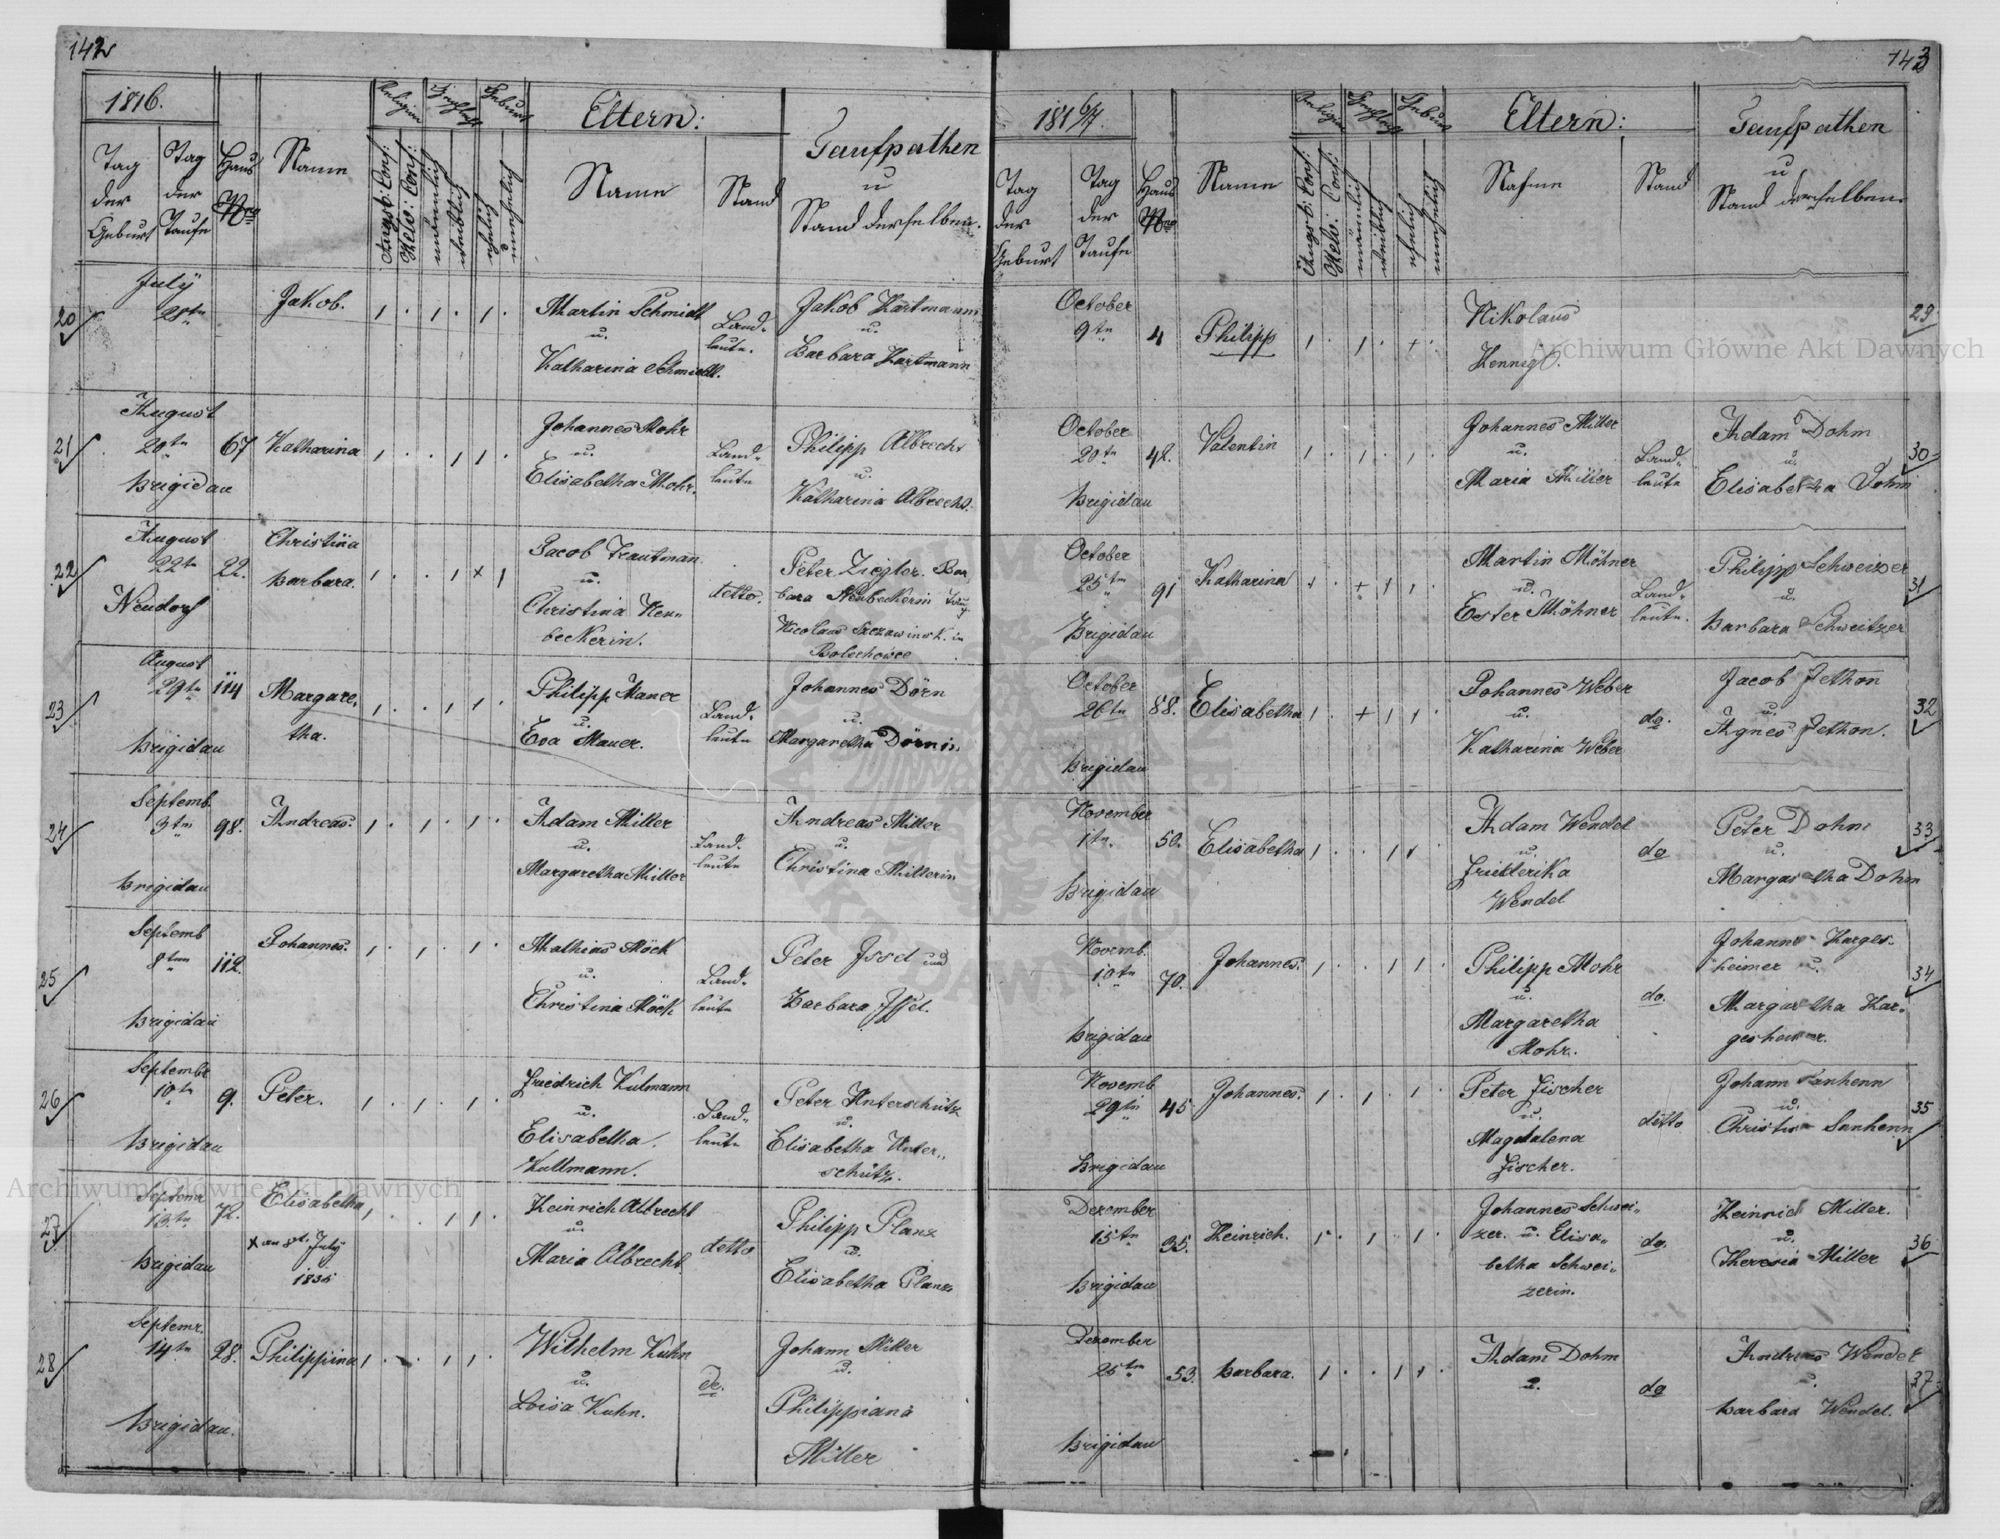 142
1816.
Religion
Geschlecht
Geburt
Eltern:
Taufpathen
u
Stand derselben.
Tag
der
Geburt
Tag
der
Taufe
Haus
Nro
Name
Augsb: Conf:
Helv: Conf:
männlich
weiblich
ehelich
unehelich
Name
Stand
20
July
28tn
Jakob.
Martin Schmidt
u.
Katharina Schmidt.
Land-
leute.
Jakob Hartmann
u.
Barbara Hartmann
21
August
20tn
Brigidau
67
Katharina
Johannes Mohr
u.
Elisabetha Mohr.
Land-
leute
Philipp Albrecht
u.
Katharina Albrecht.
22
August
22tn
Neudorf
22.
Christina
Barbara.
Jacob Trautman
u.
Christina Neu-
beckerin.
detto.
Peter Ziegler. Bar
bara Neubeckerin
Nicolaus in
Bolechowce
23
August
29tn
Brigidau
114
Margare,
tha.
Philipp Mauer
u.
Eva Mauer.
Land-
leute
Johannes Dörn
u.
Margaretha Dörnin.
24
Septemb.
3tn
Brigidau
98.
Andreas.
Adam Miller
u.
Margaretha Miller
Land-
leute
Andreas Miller
u.
Christina Millerin
25
Septemb
8tn
Brigidau
112.
Johannes.
Mathias Möck
u.
Christina Möck
Land-
leute
Peter Issel und
Barbara Issel.
26
Septembr
10tn
Brigidau
9.
Peter.
Friedrich Kulmann
u.
Elisabetha
Kullmann.
Land-
leute
Peter Unterschütz
u.
Elisabetha Unter,,
schütz.
27
Septemr
13tn
Brigidau
72.
Elisabetha
x an July
1835
Heinrich Albrecht
u.
Maria Albrecht.
detto
Philipp Planz
u.
Elisabetha Planz
28
Septemr.
14tn
Brigidau.
28.
Philippina
Wilhelm Kuhn
u.
Loisa Kuhn.
do.
Johann Miller
u.
Philippiana
Miller
143
1816/17.
Religion
Geschlecht
Geburt
Eltern:
Taufpathen
u
Stand derselben.
Tag
der
Geburt
Tag
der
Taufe
Haus
Nro
Name
Augsb: Conf:
Helv: Conf:
männlich
weiblich
ehelich
unehelich
Nahme
Stand
October
9tn
4
Philipp
Nikolaus
Hennigl.
29
October
20tn
Brigidau
42.
Valentin
Johannes Miller
u.
Maria Miller
Land-
leute
Adam Dohm
u.
Elisabetha Dohm
30
October
25tn
Brigidau
91
Katharina
Martin Möhner
u.
Ester Möhner
Land-
leute.
Philipp Schweizer
u.
Barbara Schweitzer
31
October
26tn
Brigidau
88.
Elisabetha
Johannes Weber
u.
Katharina Weber
do.
Jacob Jethon
u.
Agnes Jethon.
32
November
1tn.
Brigidau
50.
Elisabetha
Adam Wendel
u.
Friederika
Wendel
do
Peter Dohm
u.
Margaretha Dohm
33
Novemb.
10tn
Brigidau
70.
Johannes.
Philipp Mohr
u.
Margaretha
Mohr.
do.
Johannes Harges-
heimer u.
Margaretha Har-
gesheimer.
34
Novemb
29tn
Brigidau
45
Johannes.
Peter Fischer
u.
Magdalena
Fischer.
detto
Johann Sanhenn
u.
Christina Sanhenn
35
Dezember
15tn
Brigidau
35.
Heinrich.
Johannes Schwei-
zer. u. Elisa,,
betha Schwei-
zerin.
do.
Heinrich Miller.
u.
Theresia Miller
36
Dezember
25tn
Brigidau
53.
Barbara.
Adam Dohm
u.
do
Andreas Wendel
u.
Barbara Wendel.
37
Archiwum Główne Akt Dawnych
Archiwum Główne Akt Dawnych